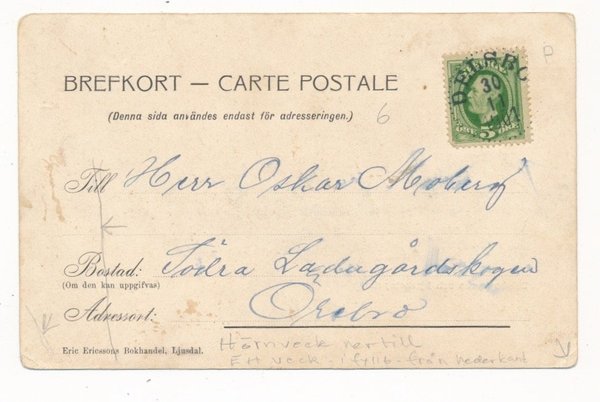 BREFKORT — CARTE POSTALE
(Denna sida användes endast för adresseringen.)
6
P
DELSBO
30
11
01
5
ÖRE
Till Herr Oskar Moberg
Bostad: Södra Ladugårdskogen
(Om den kan uppgifvas)
Örebro
Adressort:
Eric Ericssons Bokhandel, Ljusdal.
Hörnveck ner till
Ett veck - i fyllb - från nederkant